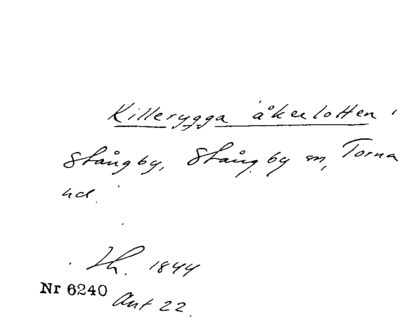 Killerygga åkerlotten i
Stångby, Stångby sn, Torna
hd.
Lh. 1844
Nr 6240
Ant 22.